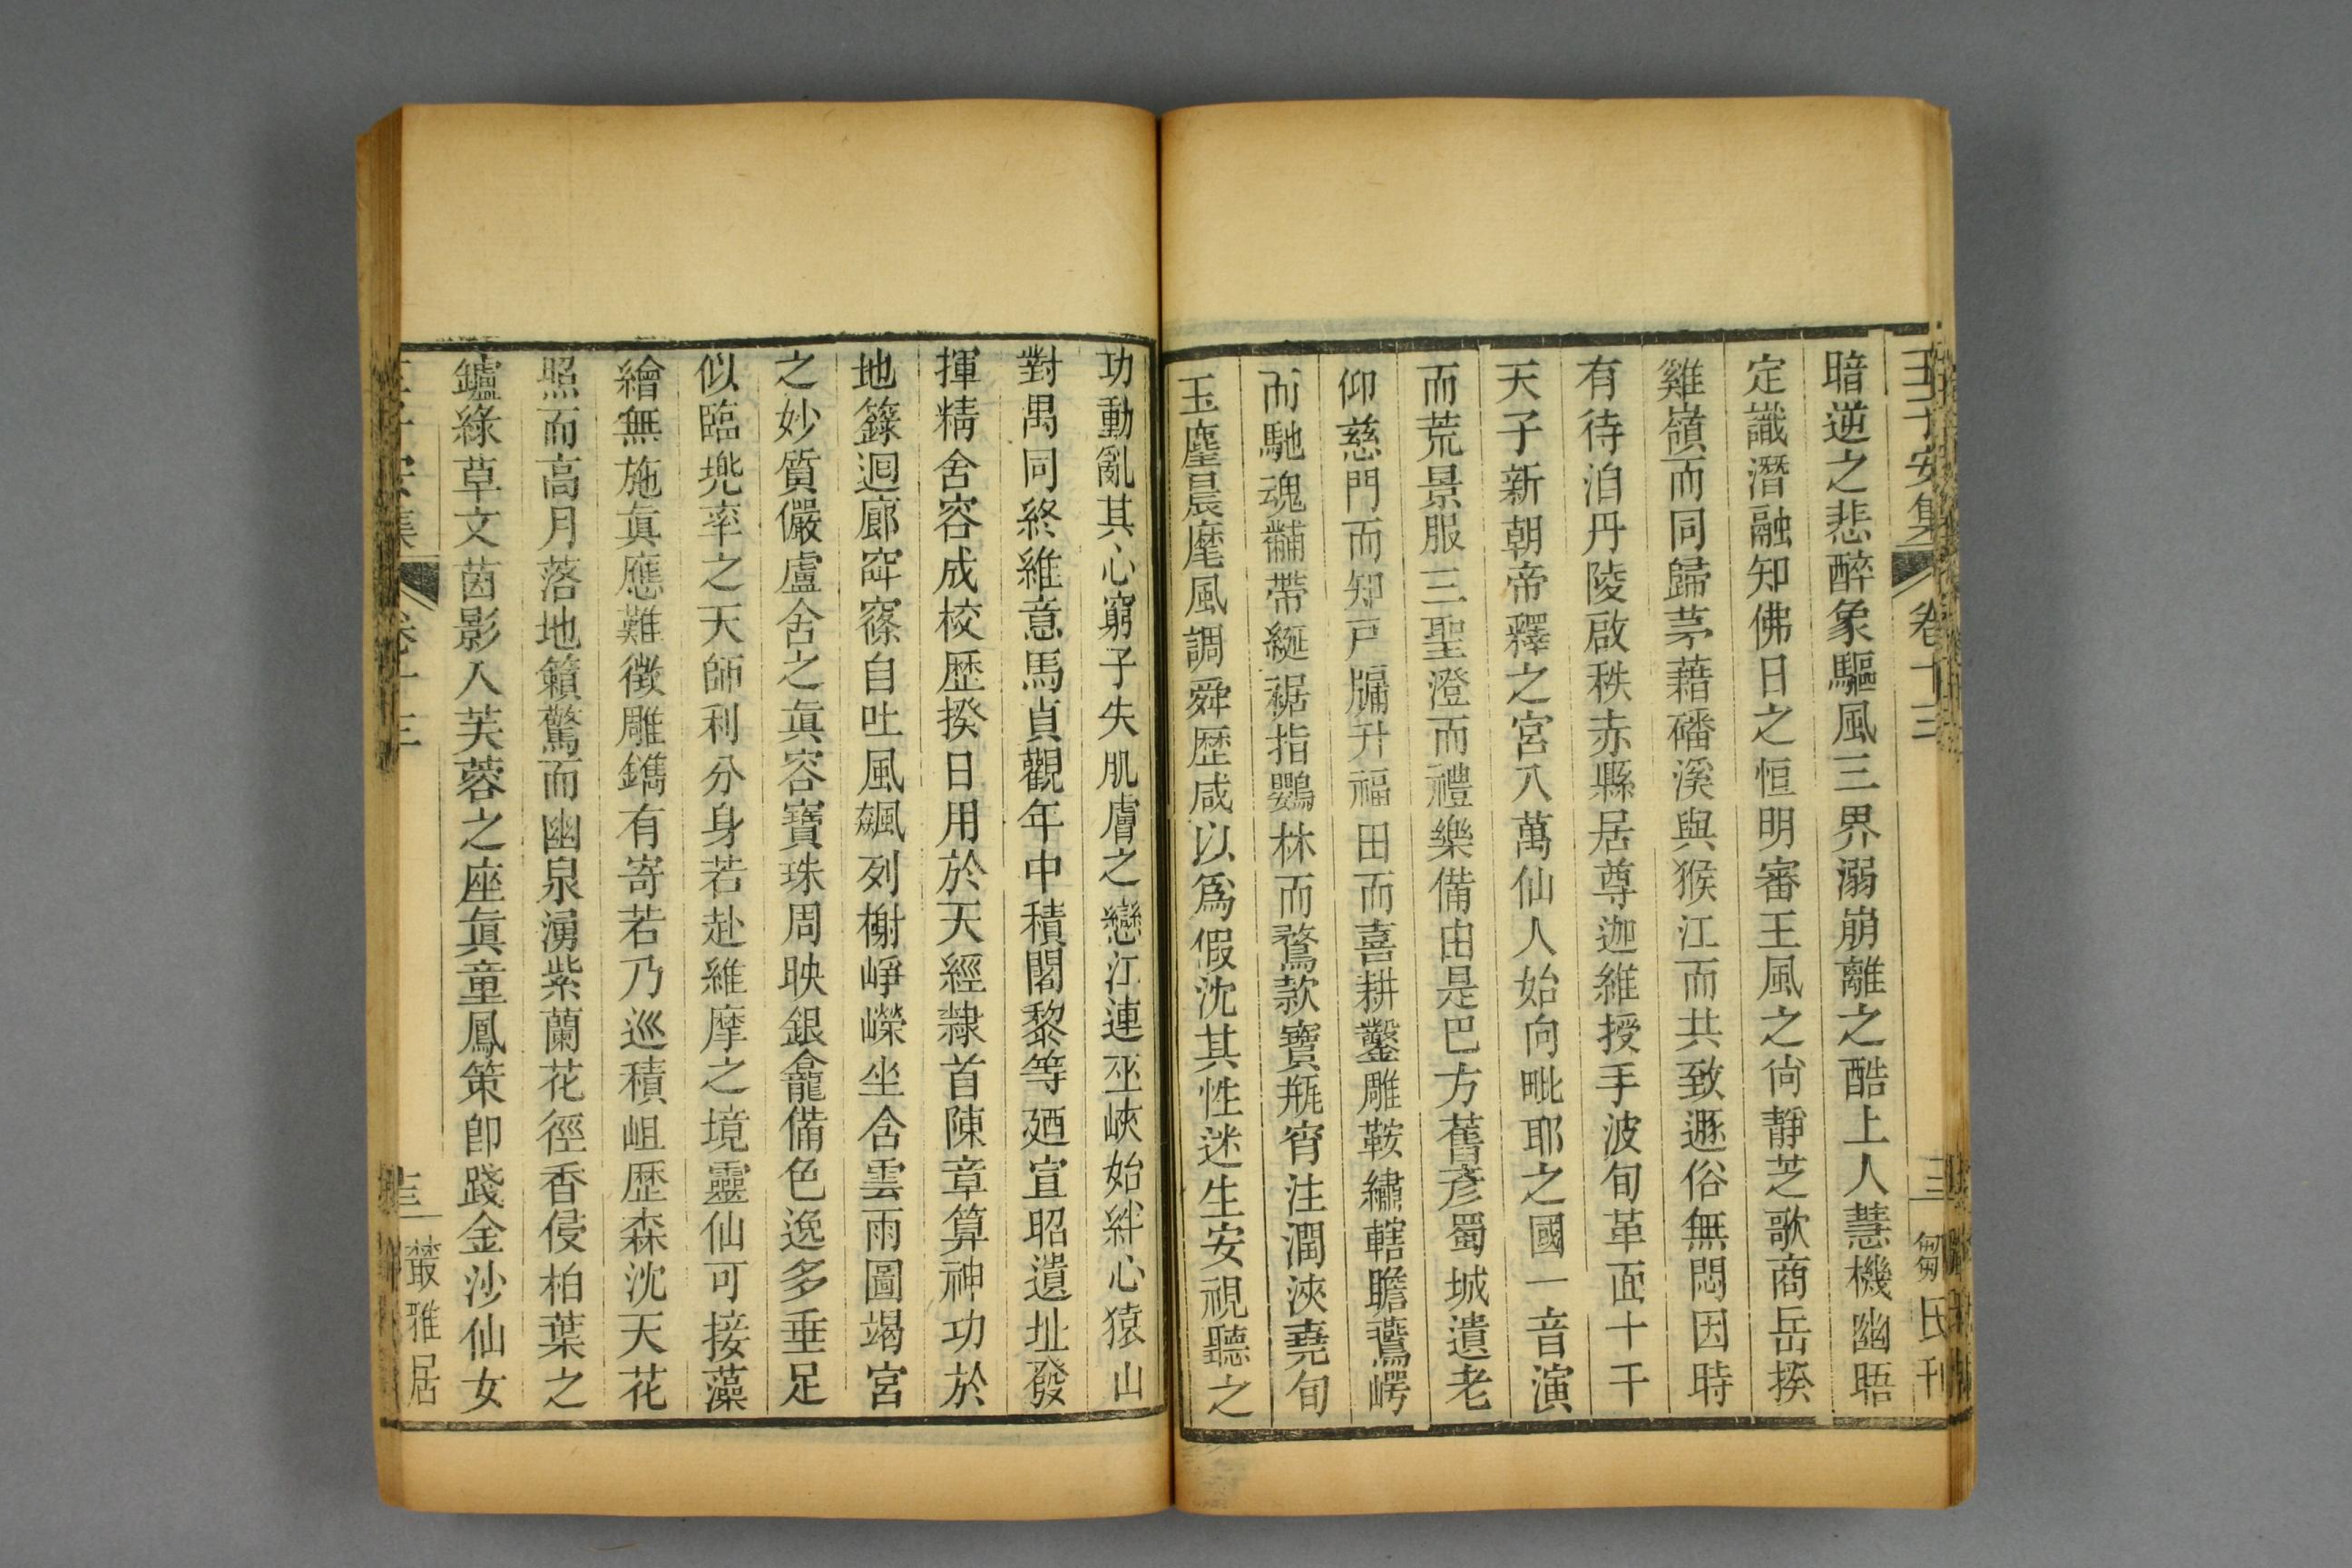 王子安集 卷十三 三 芻氏刊
暗逆之悲醉象驅風三界溺崩離之酷上人慧機幽晤
定識潛融知佛日之恒明審王風之尙靜芝歌商岳揆
雞嶺而同歸茅藉磻溪與猴江而共致遯俗無悶因時
有待洎丹陵啟秩赤縣居尊迦維授手波旬革面十千
天子新朝帝釋之宮八萬仙人始向毗耶之國一音演
而荒景服三聖澄而禮樂備由是巴方舊彥蜀城遺老
仰慈門而知戸牖升福田而喜耕鑿雕鞍繡轄瞻鷰崿
而馳魂黼帶綖裾指鸚林而鶩款寶瓶宵注潤浹堯旬
玉麈晨麾風調舜歴咸以爲假沈其性迷生安視聽之
功動亂其心窮子失肌膚之戀江連巫峽始絆心猿山
對禺同終維意馬貞觀年中積閣黎等廼宣昭遺址發
揮精舍容成校歴揆日用於天經隸首陳章算神功於
地籙迴廊窣窱自吐風飈列榭崢嶸坐含雲雨圖竭宮
之妙質儼盧舍之眞容寶珠周映銀龕備色逸多垂足
似臨兠率之天師利分身若赴維摩之境靈仙可接藻
繪無施眞應難徵雕鐫有寄若乃巡積岨歴森沈天花
照而高月落地籟驚而幽泉湧紫蘭花徑香侵柏葉之
鑪綠草文茵影入芙蓉之座眞童鳳策卽踐金沙仙女
集 卷十三 叢雅居